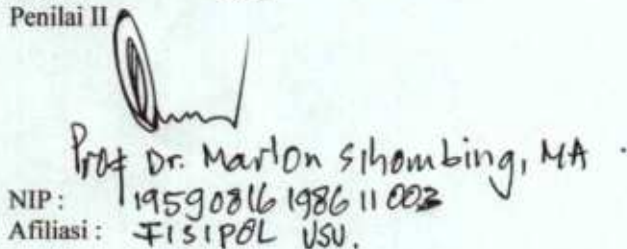 Penilai II
Prof Dr. Marlon Sihombing, MA.
NIP : 19590816 198611 003
Afiliasi : FISIPOL USU.